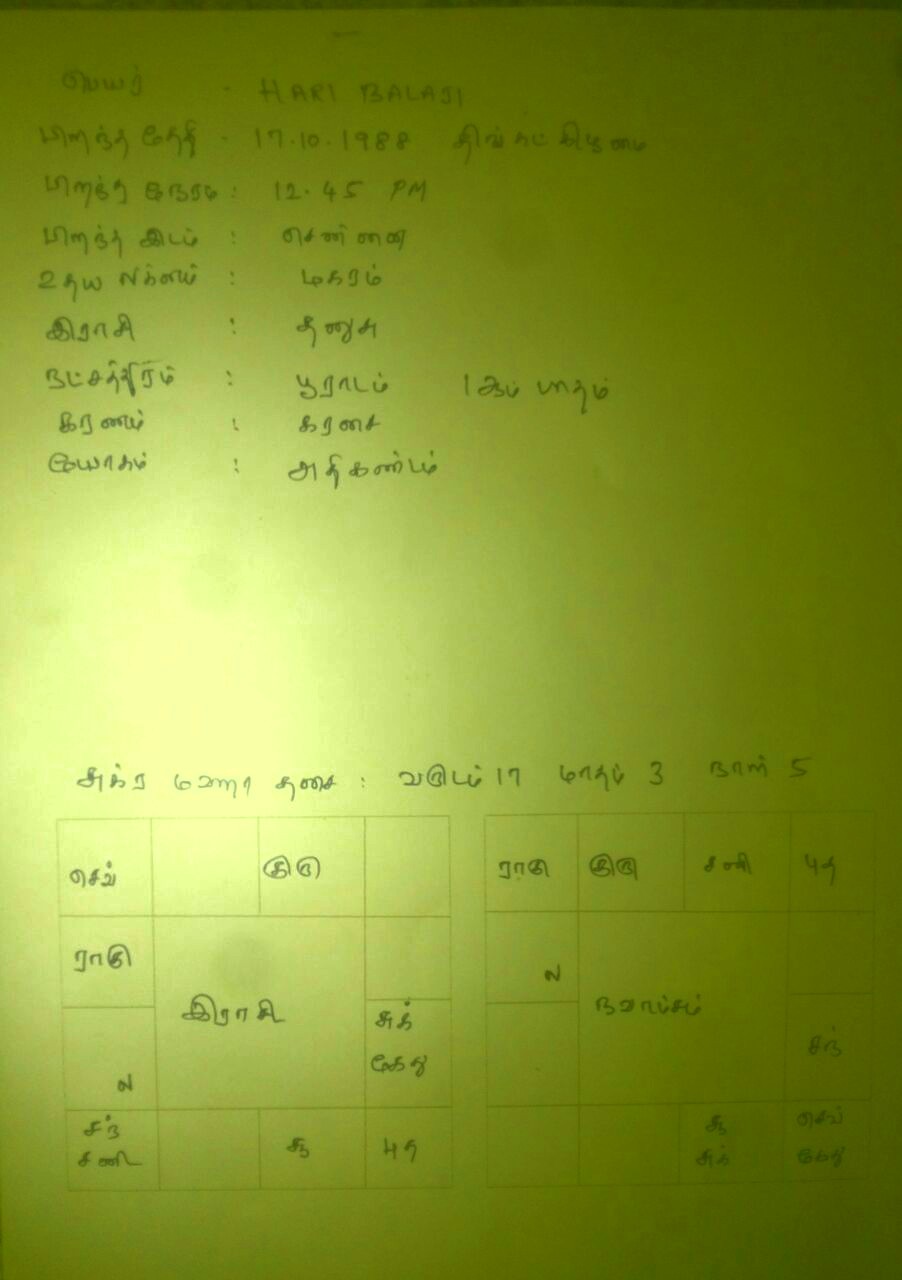 பெயர் - HARI BALAJI
பிறந்த தேதி - 17.10.1988 திங்கட்கிழமை
பிறந்த நேரம் : 12.45 PM
பிறந்த இடம் : சென்னை
உதய லக்னம் : மகரம்
இராசி : தனுசு
நட்சத்திரம் : பூராடம் 1ஆம் பாதம்
கரணம் : கரசை
யோகம் : அதிகண்டம்
சுக்ர மஹா தசை : வருடம் 17 மாதம் 3 நாள் 5
செவ் குரு ராகு குரு சனி புத
ராகு ல
இராசி சுக் நவாம்சம் சந்
ல கேது
சந் சூ புத சூ செவ்
சனி சுக் கேது